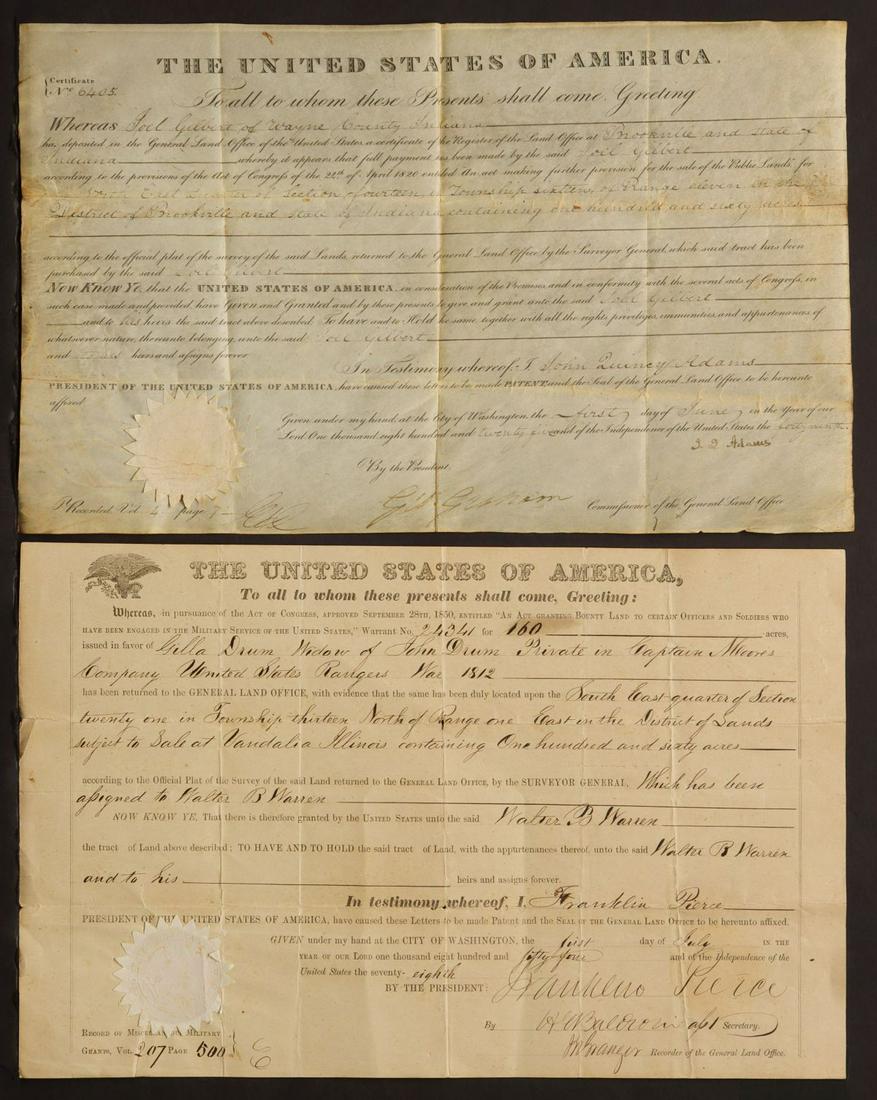 THE UNITED STATES OF AMERICA.
Certificate
No. 6405
To all to whom these Presents shall come, Greeting
Whereas Joel Gilbert of Wayne County Indiana
ha deposited in the General Land Office of the United States a certificate of the Register of the Land Office at Brookville and State of
Indiana whereby it appears that full payment has been made by the said Joel Gilbert
according to the provisions of the Act of Congress of the 24th of April 1820 entitled An act making further provision for the sale of the Public Lands for
North East quarter of Section fourteen in Township sixteen of Range eleven in the
District of Brookville and State of Indiana containing one hundred and sixty acres
according to the official plat of the survey of the said Lands, returned to the General Land Office by the Surveyor General, which said tract has been
purchased by the said Joel Gilbert
NOW KNOW YE, that the UNITED STATES OF AMERICA, in consideration of the Premises, and in conformity with the several acts of Congress, in
such case made and provided, have Given and Granted and by these presents do give and grant unto the said Joel Gilbert
and to his heirs the said tract above described: To have and to Hold the same, together with all the rights, privileges, immunities, and appurtenances of
whatsoever nature, thereunto belonging, unto the said Joel Gilbert
and heirs and assigns forever
In Testimony whereof, I, John Quincy Adams
PRESIDENT OF THE UNITED STATES OF AMERICA, have caused these letters to be made PATENT, and the Seal of the General Land Office to be hereunto
affixed.
Given under my hand, at the City of Washington, the first day of June, in the Year of our
Lord One thousand eight hundred and twenty five and of the Independence of the United States the forty ninth
J. Q. Adams
By the President.
Geo Graham Commissioner of the General Land Office
Recorded Vol page
THE UNITED STATES OF AMERICA,
To all to whom these presents shall come, Greeting:
Whereas, in pursuance of the Act of Congress, approved September 28th, 1850, entitled "An Act granting Bounty Land to certain Officers and Soldiers who
have been engaged in the Military Service of the United States," Warrant No. 24341 for 160 acres,
issued in favor of Gilla Drum, Widow of John Drum Private in Captain Moores
Company United States Rangers War 1812
has been returned to the GENERAL LAND OFFICE, with evidence that the same has been duly located upon the South East quarter of Section
twenty one in Township thirteen North of Range one East in the District of Lands
subject to Sale at Vandalia Illinois containing One hundred and sixty acres
according to the Official Plat of the Survey of the said Land returned to the General Land Office, by the SURVEYOR GENERAL, Which has been
assigned to Walter B Warren
NOW KNOW YE, That there is therefore granted by the United States unto the said Walter B Warren
the tract of Land above described; TO HAVE AND TO HOLD the said tract of Land, with the appurtenances thereof, unto the said Walter B Warren
and to his heirs and assigns forever.
In testimony whereof, I, Franklin Pierce
PRESIDENT OF THE UNITED STATES OF AMERICA, have caused these Letters to be made Patent and the Seal of the General Land Office to be hereunto affixed.
GIVEN under my hand at the CITY OF WASHINGTON, the first day of July in the
year of our Lord one thousand eight hundred and fifty four and of the Independence of the
United States the seventy- eighth
BY THE PRESIDENT: Franklin Pierce
By H E Baldwin asst Secretary.
Record of Miscellaneous Military
J N Granger Recorder of the General Land Office.
Grants, Vol. 207 Page 500